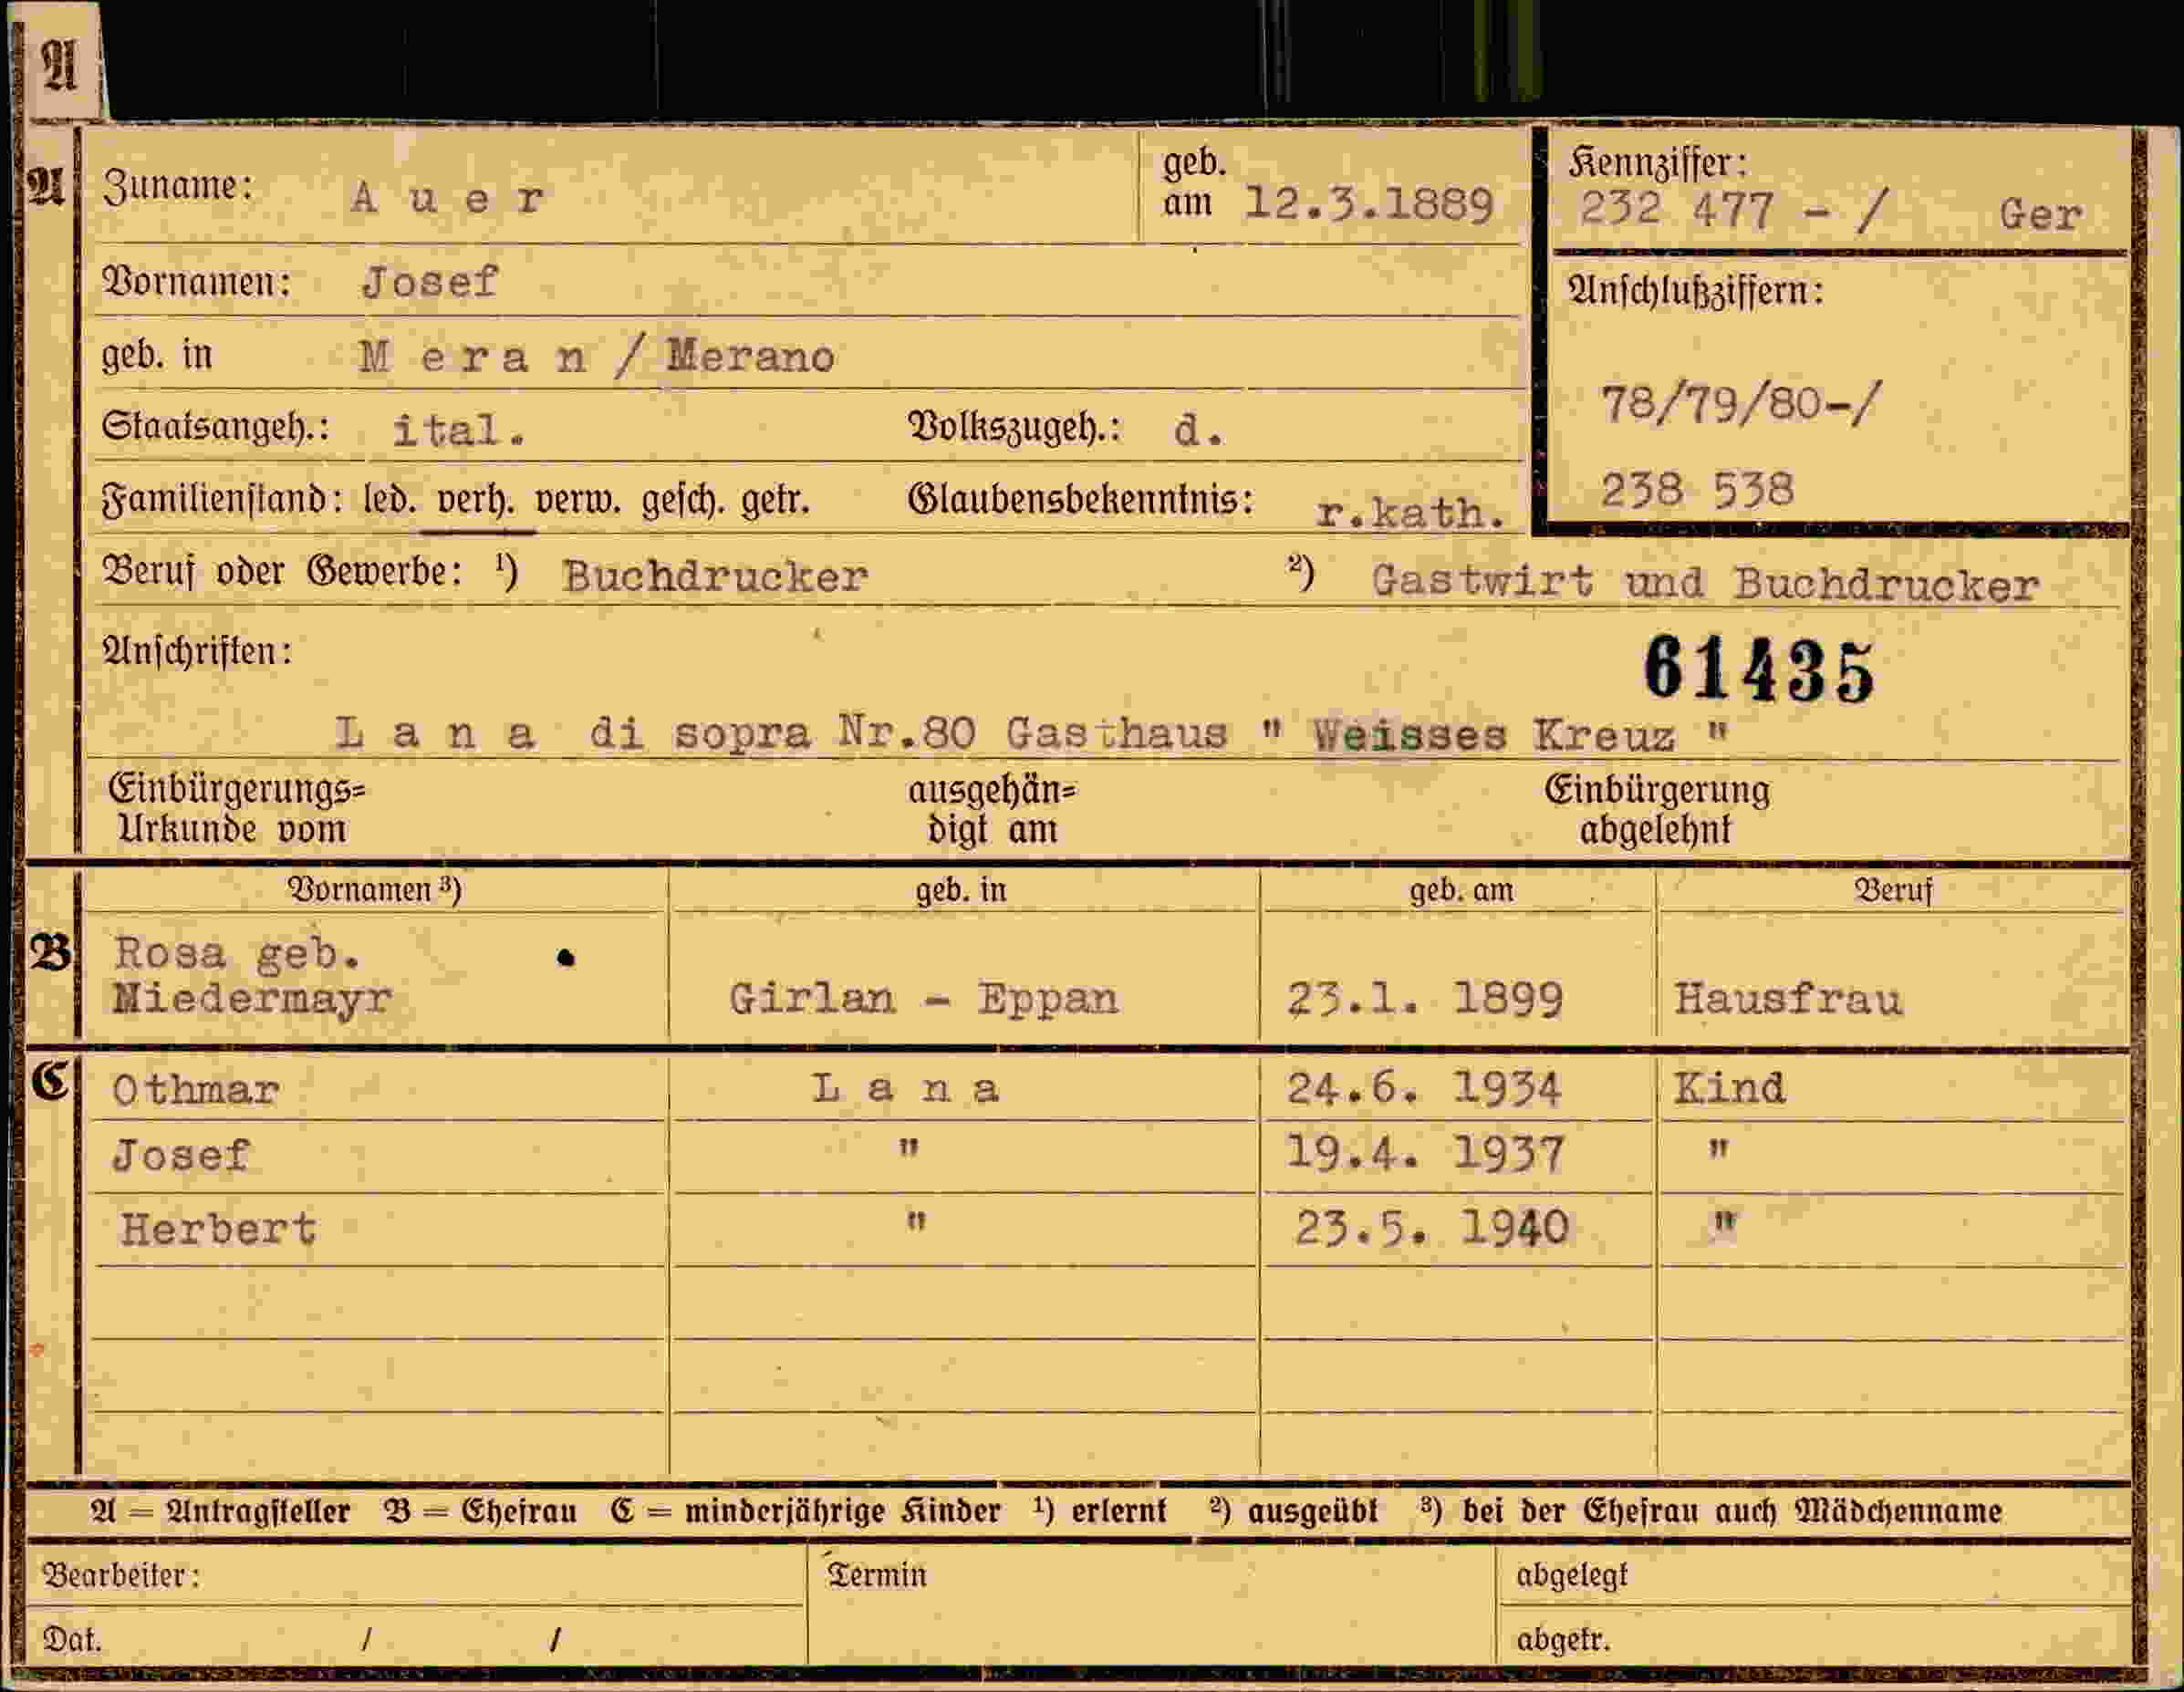 A
A
Zuname: Auer
geb.
am 12.3.1889
Kennziffer:
232 477 - / Ger
Vornamen: Josef
Anschlußziffern:
geb. in Meran / Merano
78/79/80-/
Staatsangeh.: ital. Volkszugeh.: d.
238 538
Familienstand: led. verh. verw. gesch. getr. Glaubensbekenntnis: r.kath.
Beruf oder Gewerbe: ¹) Buchdrucker ²) Gastwirt und Buchdrucker
Anschriften:
61435
Lana di sopra Nr.80 Gasthaus " Weisses Kreuz "
Einbürgerungs=
Urkunde vom
ausgehän=
digt am
Einbürgerung
abgelehnt
Vornamen ³) geb. in geb. am Beruf
B Rosa geb.
Niedermayr Girlan - Eppan 23.1. 1899 Hausfrau
C Othmar Lana 24.6. 1934 Kind
Josef " 19.4. 1937 "
Herbert " 23.5. 1940 "
A = Antragsteller B = Ehefrau C = minderjährige Kinder ¹) erlernt ²) ausgeübt ³) bei der Ehefrau auch Mädchenname
Bearbeiter: Termin abgelegt
Dat. / / abgetr.